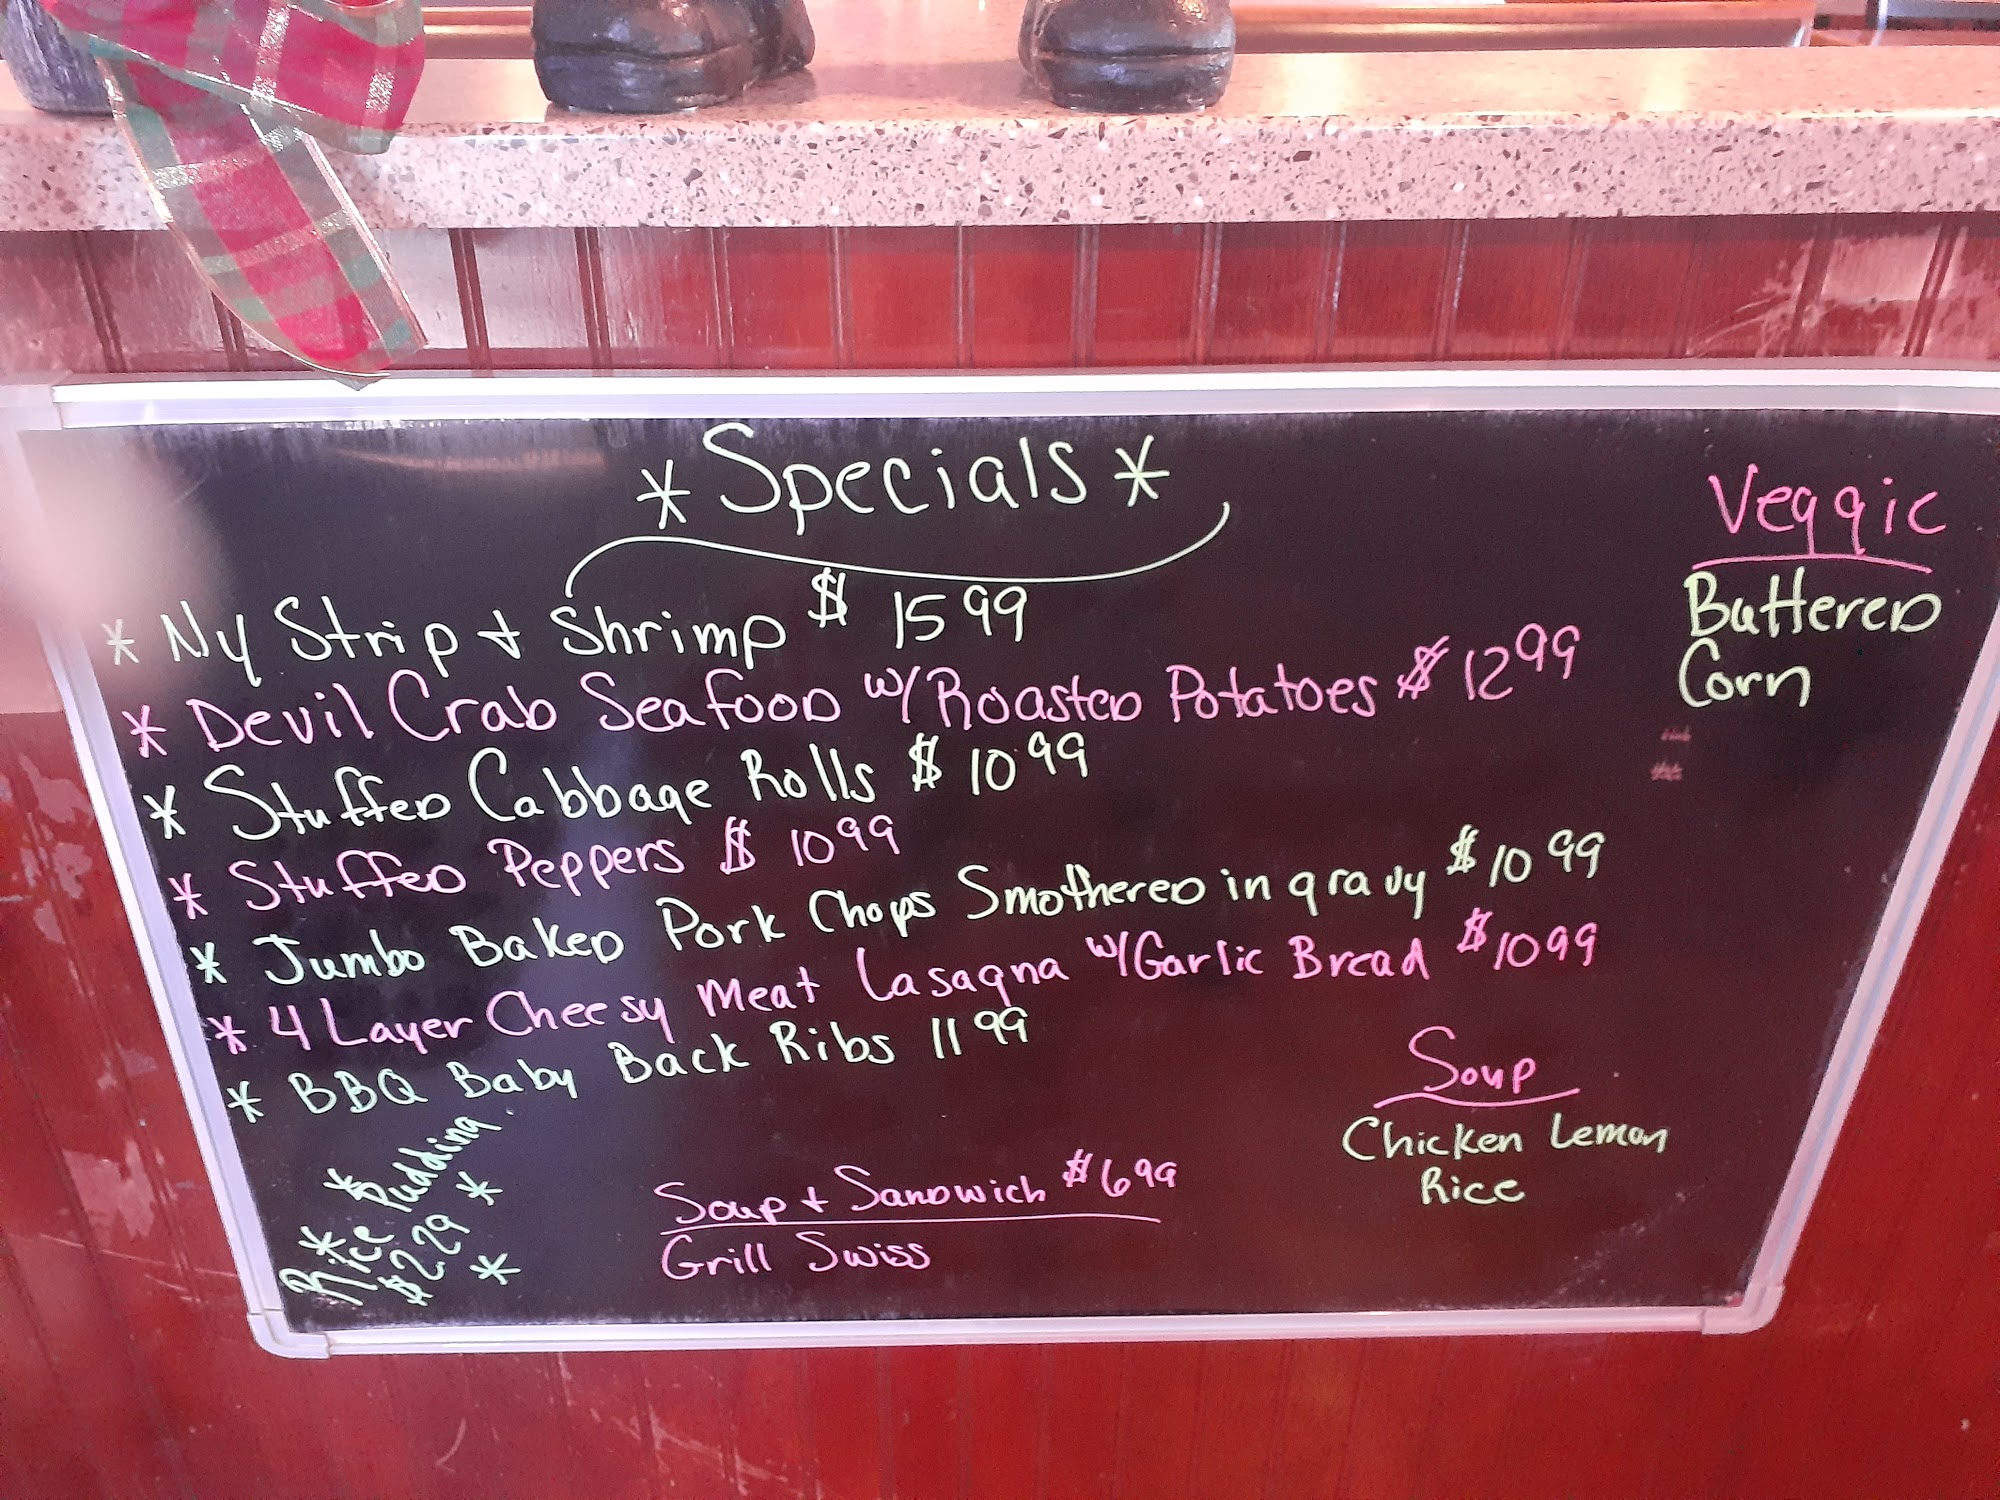 * Specials *
* Ny Strip + Shrimp $ 15 99
* Devil Crab Seafood w/ Roasted Potatoes $ 12 99
* Stuffed Cabbage Rolls $ 10 99
* Stuffed Peppers $ 10 99
* Jumbo Baked Pork Chops Smothered in gravy $ 10 99
* 4 Layer Cheesy Meat Lasagna w/ Garlic Bread $ 10 99
* BBQ Baby Back Ribs 11 99
Veggie
Buttered
Corn
* Rice * Pudding
$2.29 * *
Soup + Sandwich $ 6 99
Grill Swiss
Soup
Chicken Lemon
Rice